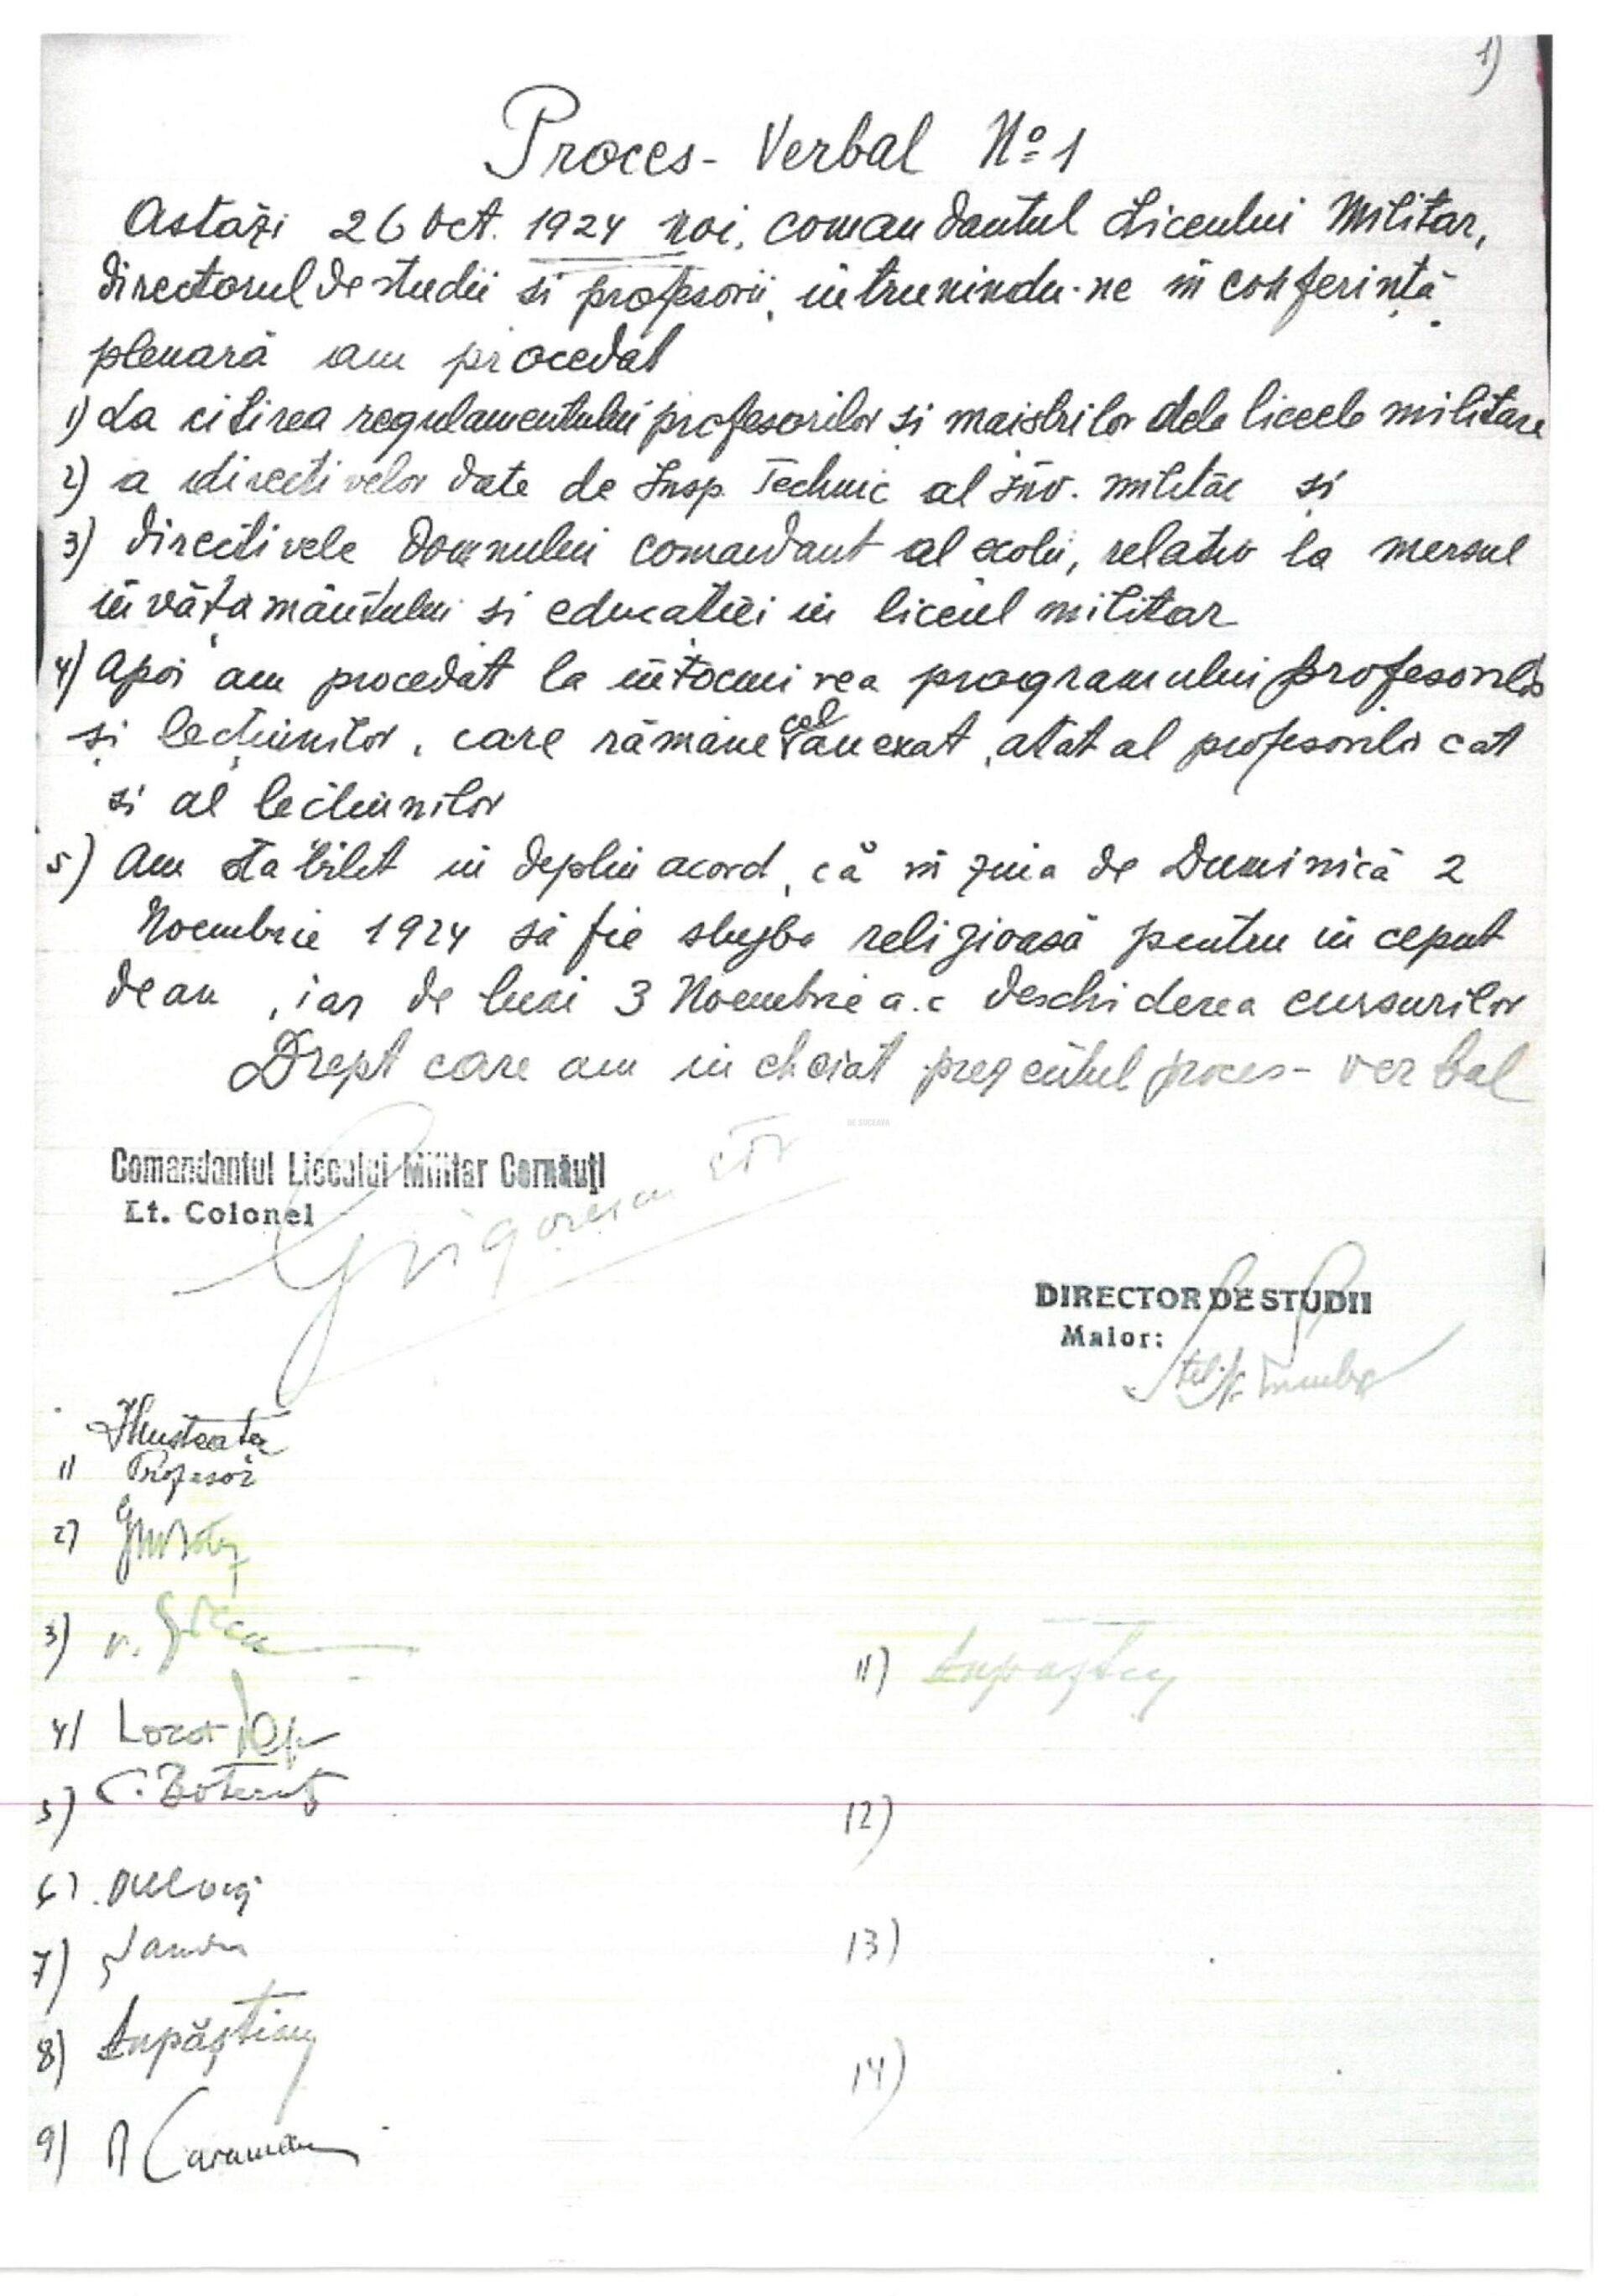 1)
Proces-Verbal No 1
Astăzi 26 Oct. 1924 noi, comandantul Liceului Militar,
directorul de studii si profesorii, întrunindu-ne în conferință
plenară am procedat
1) La citirea regulamentului profesorilor și maiștrilor dela liceele militare
2) a directivelor date de Insp. Technic al Inv. militar si
3) directivele Domnului comandant al scolii, relativ la mersul
învățamântului si educatiei in liceul militar
4) Apoi am procedat la întocmirea programului profesorilor
și lecțiunilor, care rămâne cel anexat, atât al profesorilor cat
si al lecțiunilor
5) Am stabilit in deplin acord, că in ziua de Duminică 2
Noembrie 1924 să fie slujba religioasă pentru inceput
de an, iar de luni 3 Noembrie a.c deschiderea cursurilor
Drept care am incheiat prezentul proces-verbal
Comandantul Liceului Militar Cernăuți
Lt. Colonel
Grigorescu
DIRECTOR DE STUDII
Maior:
1) Profesor
2)
3)
4)
5)
6)
7)
8) Lupăștean
9) Caraman
11)
12)
13)
14)